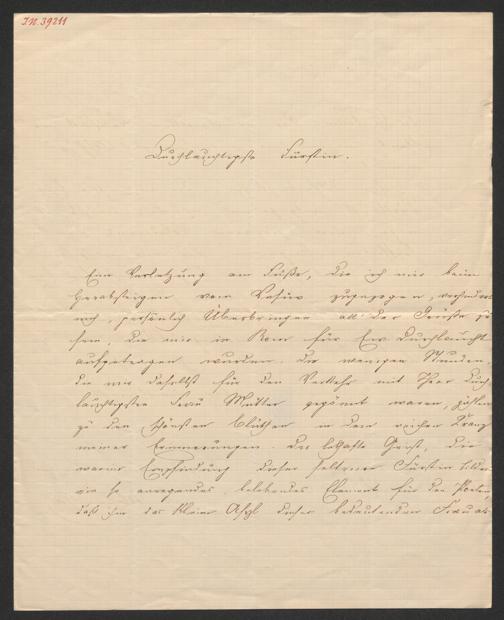 I.N. 39211
Durchlauchtigste Fürstin.
Eine Verletzung am Fuße, die ich mir beim
Herabsteigen vom Vesuv zugezogen, verhindert
mich, persönlich Überbringer all' der Grüße zu
sein, die mir in Rom für Eure Durchlaucht
aufgetragen wurden. Die wenigen Stunden,
die mir daselbst für den Verkehr mit Ihrer durch
lauchtigsten Frau Mutter gegönnt waren, zählen
zu den schönsten Blüthen in dem reichen Kranz
meiner Erinnerungen. Der lebhafte Geist, die
warme Empfindung dieser seltenen Fürstin bilden
ein so anregendes, belebendes Element für den Poeten,
daß ihm das kleine Asyl dieser bedeutenden Frau als